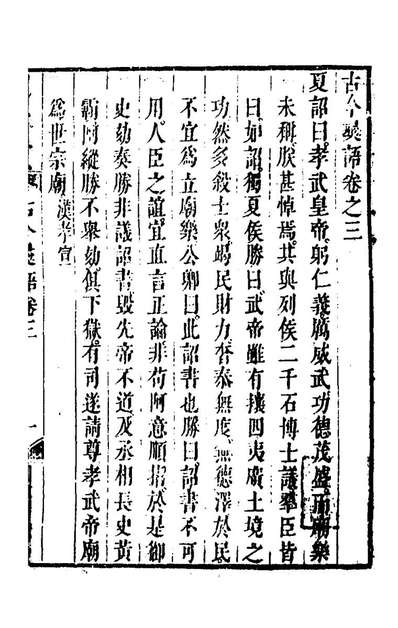 古今彝語卷之三
夏詔曰孝武皇帝躬仁義厲威武功德茂盛而廟樂
未稱朕甚悼焉其與列侯二千石博士議羣臣皆
曰如詔獨夏侯勝曰武帝雖有攘四夷廣土境之
功然多殺士衆竭民財力奢泰無度無德澤於民
不宜爲立廟樂公卿曰此詔書也勝曰詔書不可
用人臣之誼宜直言正論非苟阿意順指於是御
史劾奏勝非議詔書毀先帝不道及丞相長史黃
霸阿縱勝不舉劾俱下獄有司遂請尊孝武帝廟
爲世宗廟 漢孝宣
古今彝語卷三 一